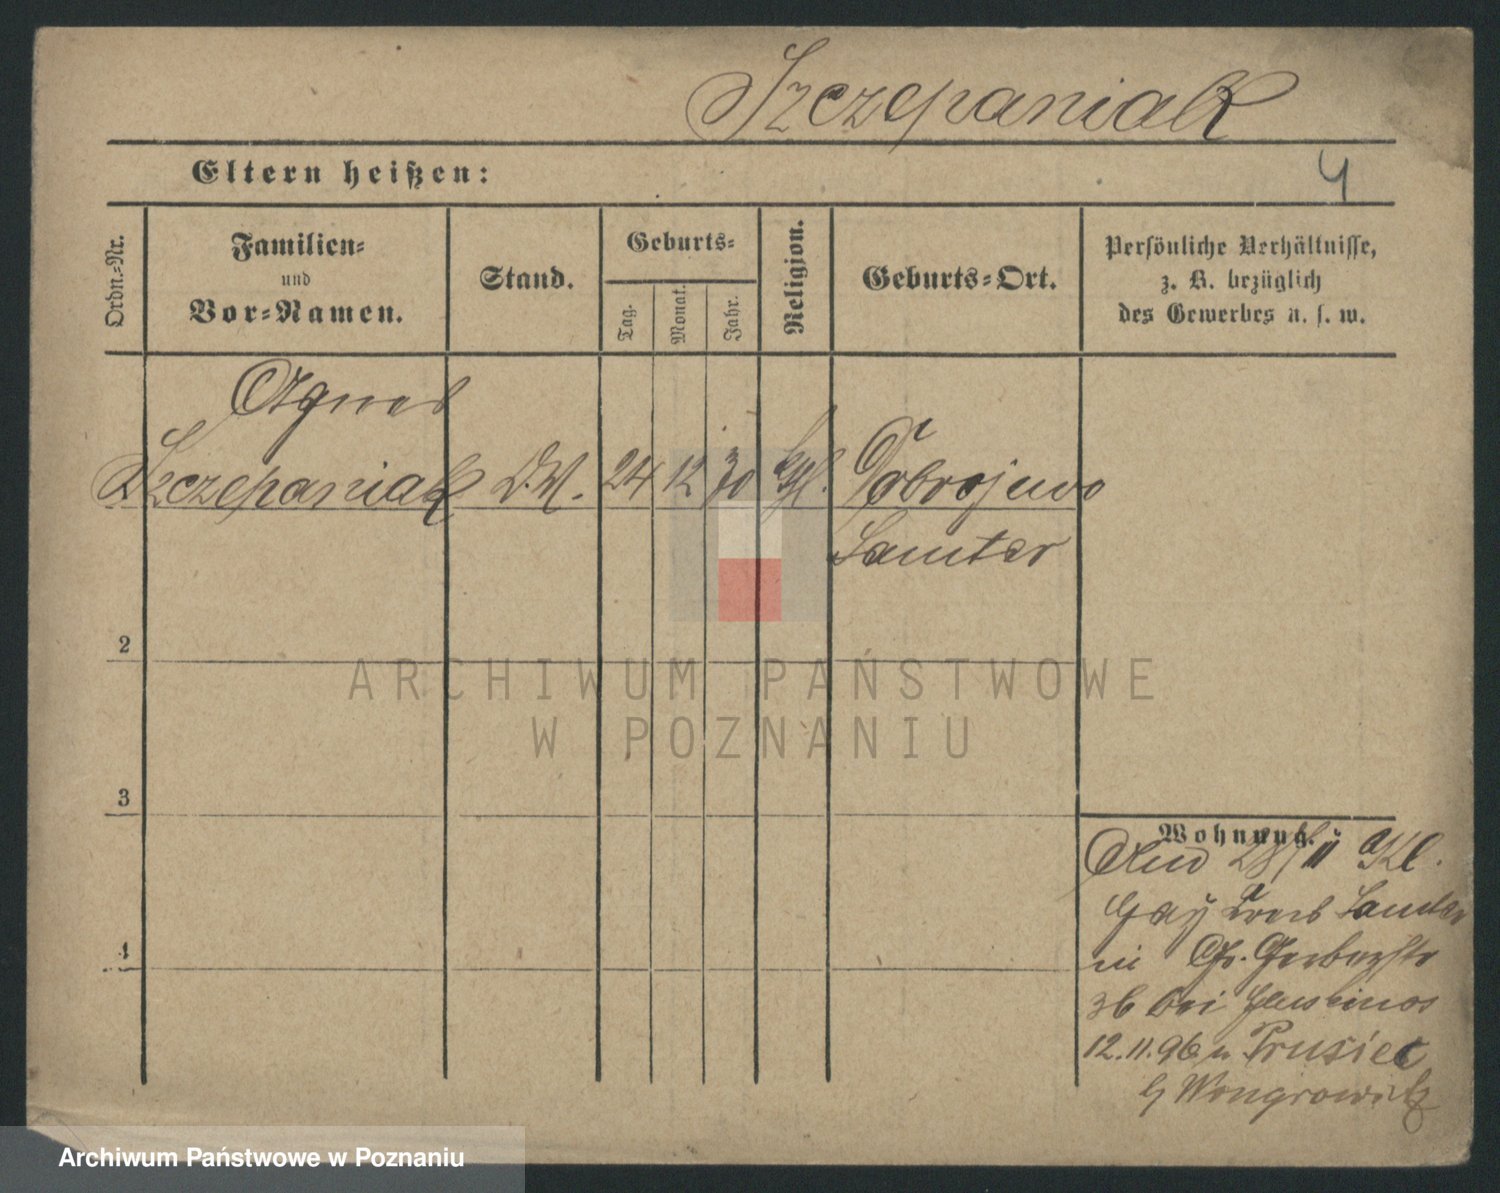 Szczepaniak
Eltern heißen:
4
Ordn.-Nr.
Familien-
und
Vor-Namen.
Stand.
Geburts-
Tag.
Monat.
Jahr.
Religion.
Geburts-Ort.
Persönliche Verhältnisse,
z. B. bezüglich
des Gewerbes u. s. w.
Agnes
Szczepaniak D.M. 24 12 70 kth. Dobrojewo
Samter
2
3
4
Wohnung.
And 28/ II a/Kl.
Gay Kreis Samter
in Gr. Gerberstr
36 bei
12.11.96 n. Prusiec
b/ Wongrowitz
ARCHIWUM PAŃSTWOWE
W POZNANIU
Archiwum Państwowe w Poznaniu